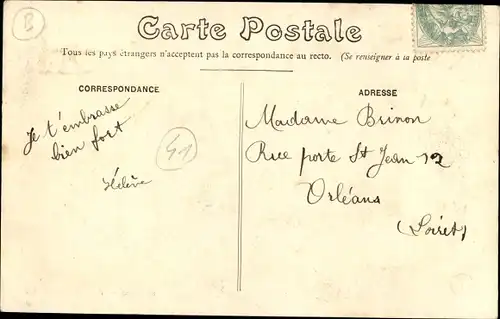 B
Carte Postale
Tous les pays étrangers n'acceptent pas la correspondance au recto. (Se renseigner à la poste
CORRESPONDANCE
ADRESSE
Je t'embrasse
bien fort
Hélène
41
Madame Brinon
Rue porte St Jean 12
Orléans
(Loiret)